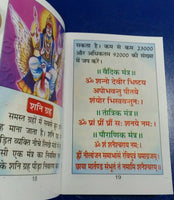 शनि ग्रह
समस्त ग्रहों में
माना जाता है।
व्यक्ति नीचे लिखे
सी एक मंत्र का
शनि ग्रह पीड़ा
18
सकता है। कम से कम 23000
और अधिकतम 92000 की संख्या
में जप करें।
वैदिक मंत्र
ॐ शन्नो देवीर भिष्टय
आपोभवन्तु पीतये
शंयोर भिस्रवन्तुनः।
तांत्रिक मंत्र
ॐ प्रां प्रीं प्रौं सः शनये नमः।
पौराणिक मंत्र
ॐ शनैश्चराय नमः।
नीलांजन समाभासं रविपुत्रं यमाग्रजम।
छाया मार्तण्ड सम्भूतं तं नमामि शनैश्चरम्॥
19